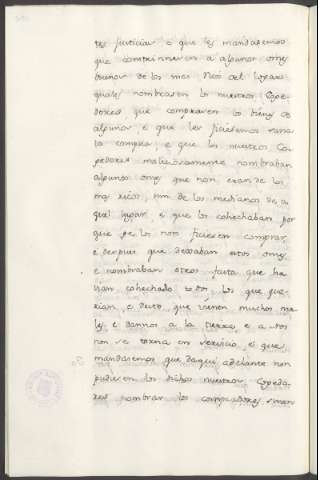 tras justicias e que les mandasemos
que constrinnesen a algunos omes
buenos de los mas ricos del logar a
quales nombrasen los nuestros Coge-
dores que comprasen los bienes de
algunos e que les ficiesemos sana
la compra e que los nuestros Co-
gedores maliciosamente nombraban
algunos omes que non eran de los
mas ricos, nin de los medianos de a
quel lugar e que los cohechaban por
que ge los non ficiesen comprar,
e despues que dexaban estos omes
e nombraban otros fasta que ha-
vian cohechado todos los que que-
rian, e desto que vienen muchos ma-
les e dannos a la tierra, e a nos
non se torna en servicio e que
mandasemos que daqui adelante non
pudiesen los dichos nuestros Cogedo-
res nombrar los compradores, e man